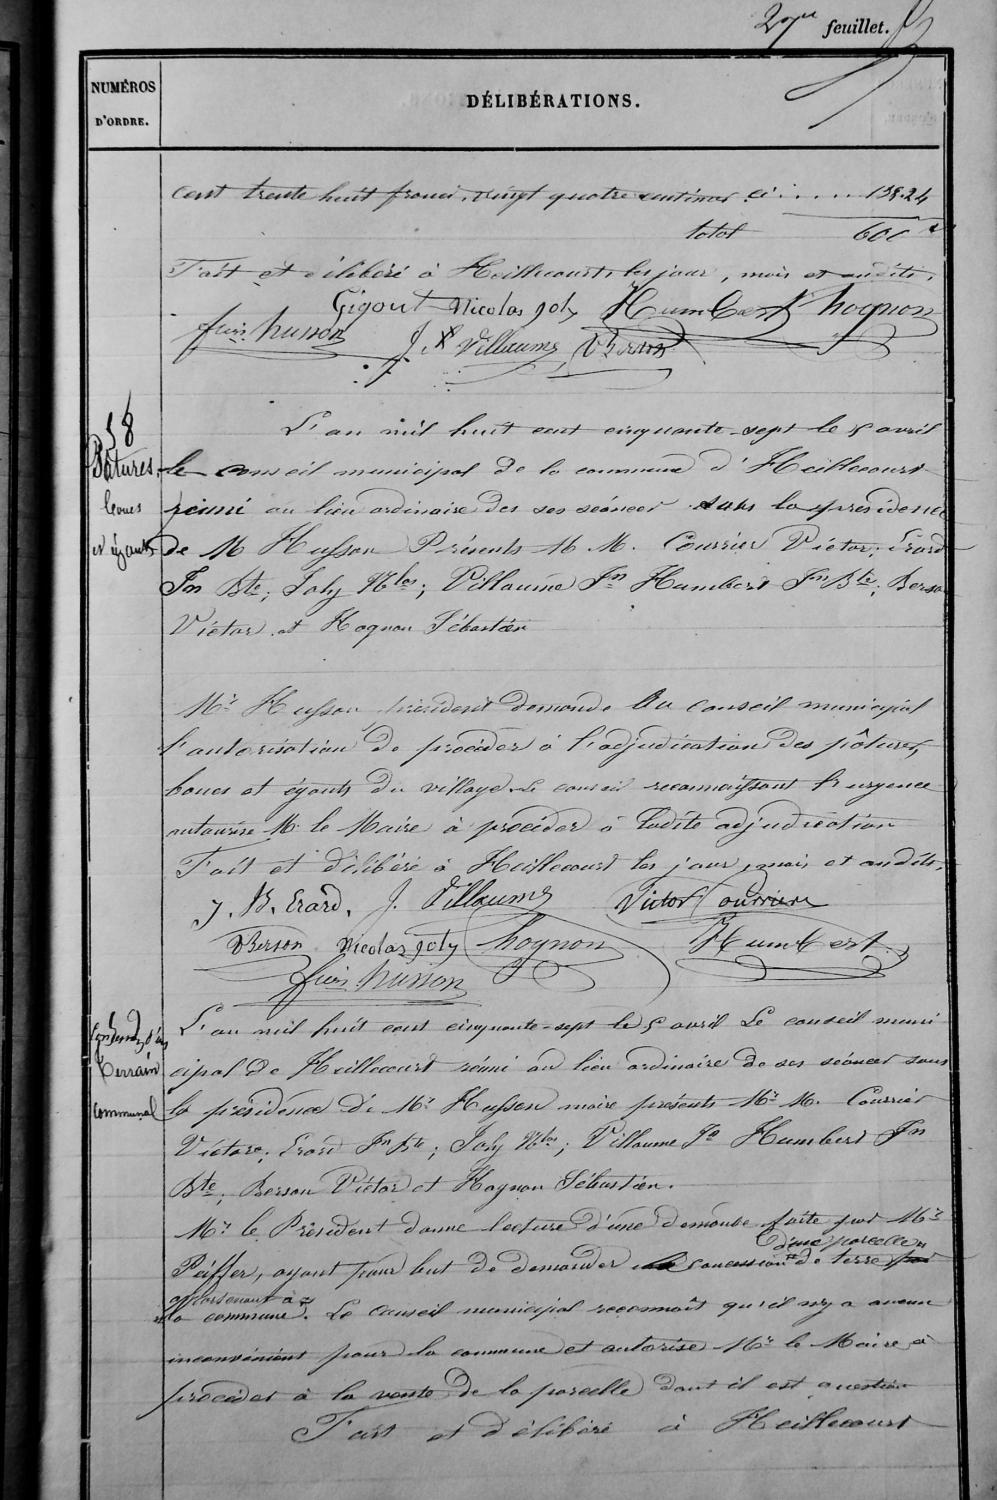 27me feuillet.
NUMÉROS
D'ORDRE.
DÉLIBÉRATIONS.
cent trente huit francs vingt quatre centimes ci . . . . . 138.24
total 600
Fait et délibéré à Heillecourt les jour, mois et an dits.
Gigout Nicolas joly Humbert hognon
husson J. Villaume VBerson
58
Pâtures
boues
et égouts
L'an mil huit cent cinquante-sept le 5 avril
le conseil municipal de la commune d'Heillecourt
réuni au lieu ordinaire des ses séances sous la présidence
de M Husson Présents M M. Courrier Victor; Erard
Jn Bte; Joly Nlas; Villaume Jn Humbert Jn Bte; Berson
Victor et Hognon Sébastien
Mr Husson président demande au conseil municipal
l'autorisation de procéder à l'adjudication des pâtures,
boues et égouts du village. Le conseil reconnaissant l'urgence
autorise M. le Maire à procéder à ladite adjudication
Fait et délibéré à Heillecourt les jour, mois et an dits,
J. B. Erard. J. Villaume Victor Courriere
VBerson Nicolas joly hognon Humbert
husson
terrain
communal
L'an mil huit cent cinquante-sept le 5 avril Le conseil muni
cipal de Heillecourt réuni au lieu ordinaire de ses séances sous
la présidence de Mr Husson maire présents Mr M. Courrier
Victor; Erard Jn Bte; Joly Nlas; Villaume Jn Humbert Jn
Bte; Berson Victor et Hognon Sébastien.
Mr le Président donne lecture d'une demande faite par Mr
d'une parcelle
Peiffer, ayant pour but de demander la concession de terre
appartenant à
la commune. Le conseil municipal reconnaît qu'il n'y a aucun
inconvénient pour la commune et autorise Mr le Maire à
procéder à la vente de la parcelle dont il est question
Fait et délibéré à Heillecourt